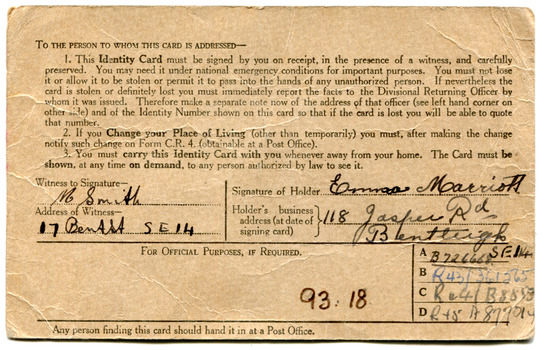 TO THE PERSON TO WHOM THIS CARD IS ADDRESSED—
1. This Identity Card must be signed by you on receipt, in the presence of a witness, and carefully
preserved. You may need it under national emergency conditions for important purposes. You must not lose
it or allow it to be stolen or permit it to pass into the hands of any unauthorized person. If nevertheless the
card is stolen or definitely lost you must immediately report the facts to the Divisional Returning Officer by
whom it was issued. Therefore make a separate note now of the address of that officer (see left hand corner on
other side) and of the Identity Number shown on this card so that if the card is lost you will be able to quote
that number.
2. If you Change your Place of Living (other than temporarily) you must, after making the change
notify such change on Form C.R. 4. (obtainable at a Post Office).
3. You must carry this Identity Card with you whenever away from your home. The Card must be
shown, at any time on demand, to any person authorized by law to see it.
Witness to Signature—
Smith
Address of Witness—
17 Bent St SE14
Signature of Holder. Emma Marriott
Holder's business address (at date of signing card) } 118 Jasper Rd
Bentleigh
SE14
FOR OFFICIAL PURPOSES, IF REQUIRED.
A
B
C
D
93:18
Any person finding this card should hand it in at a Post Office.